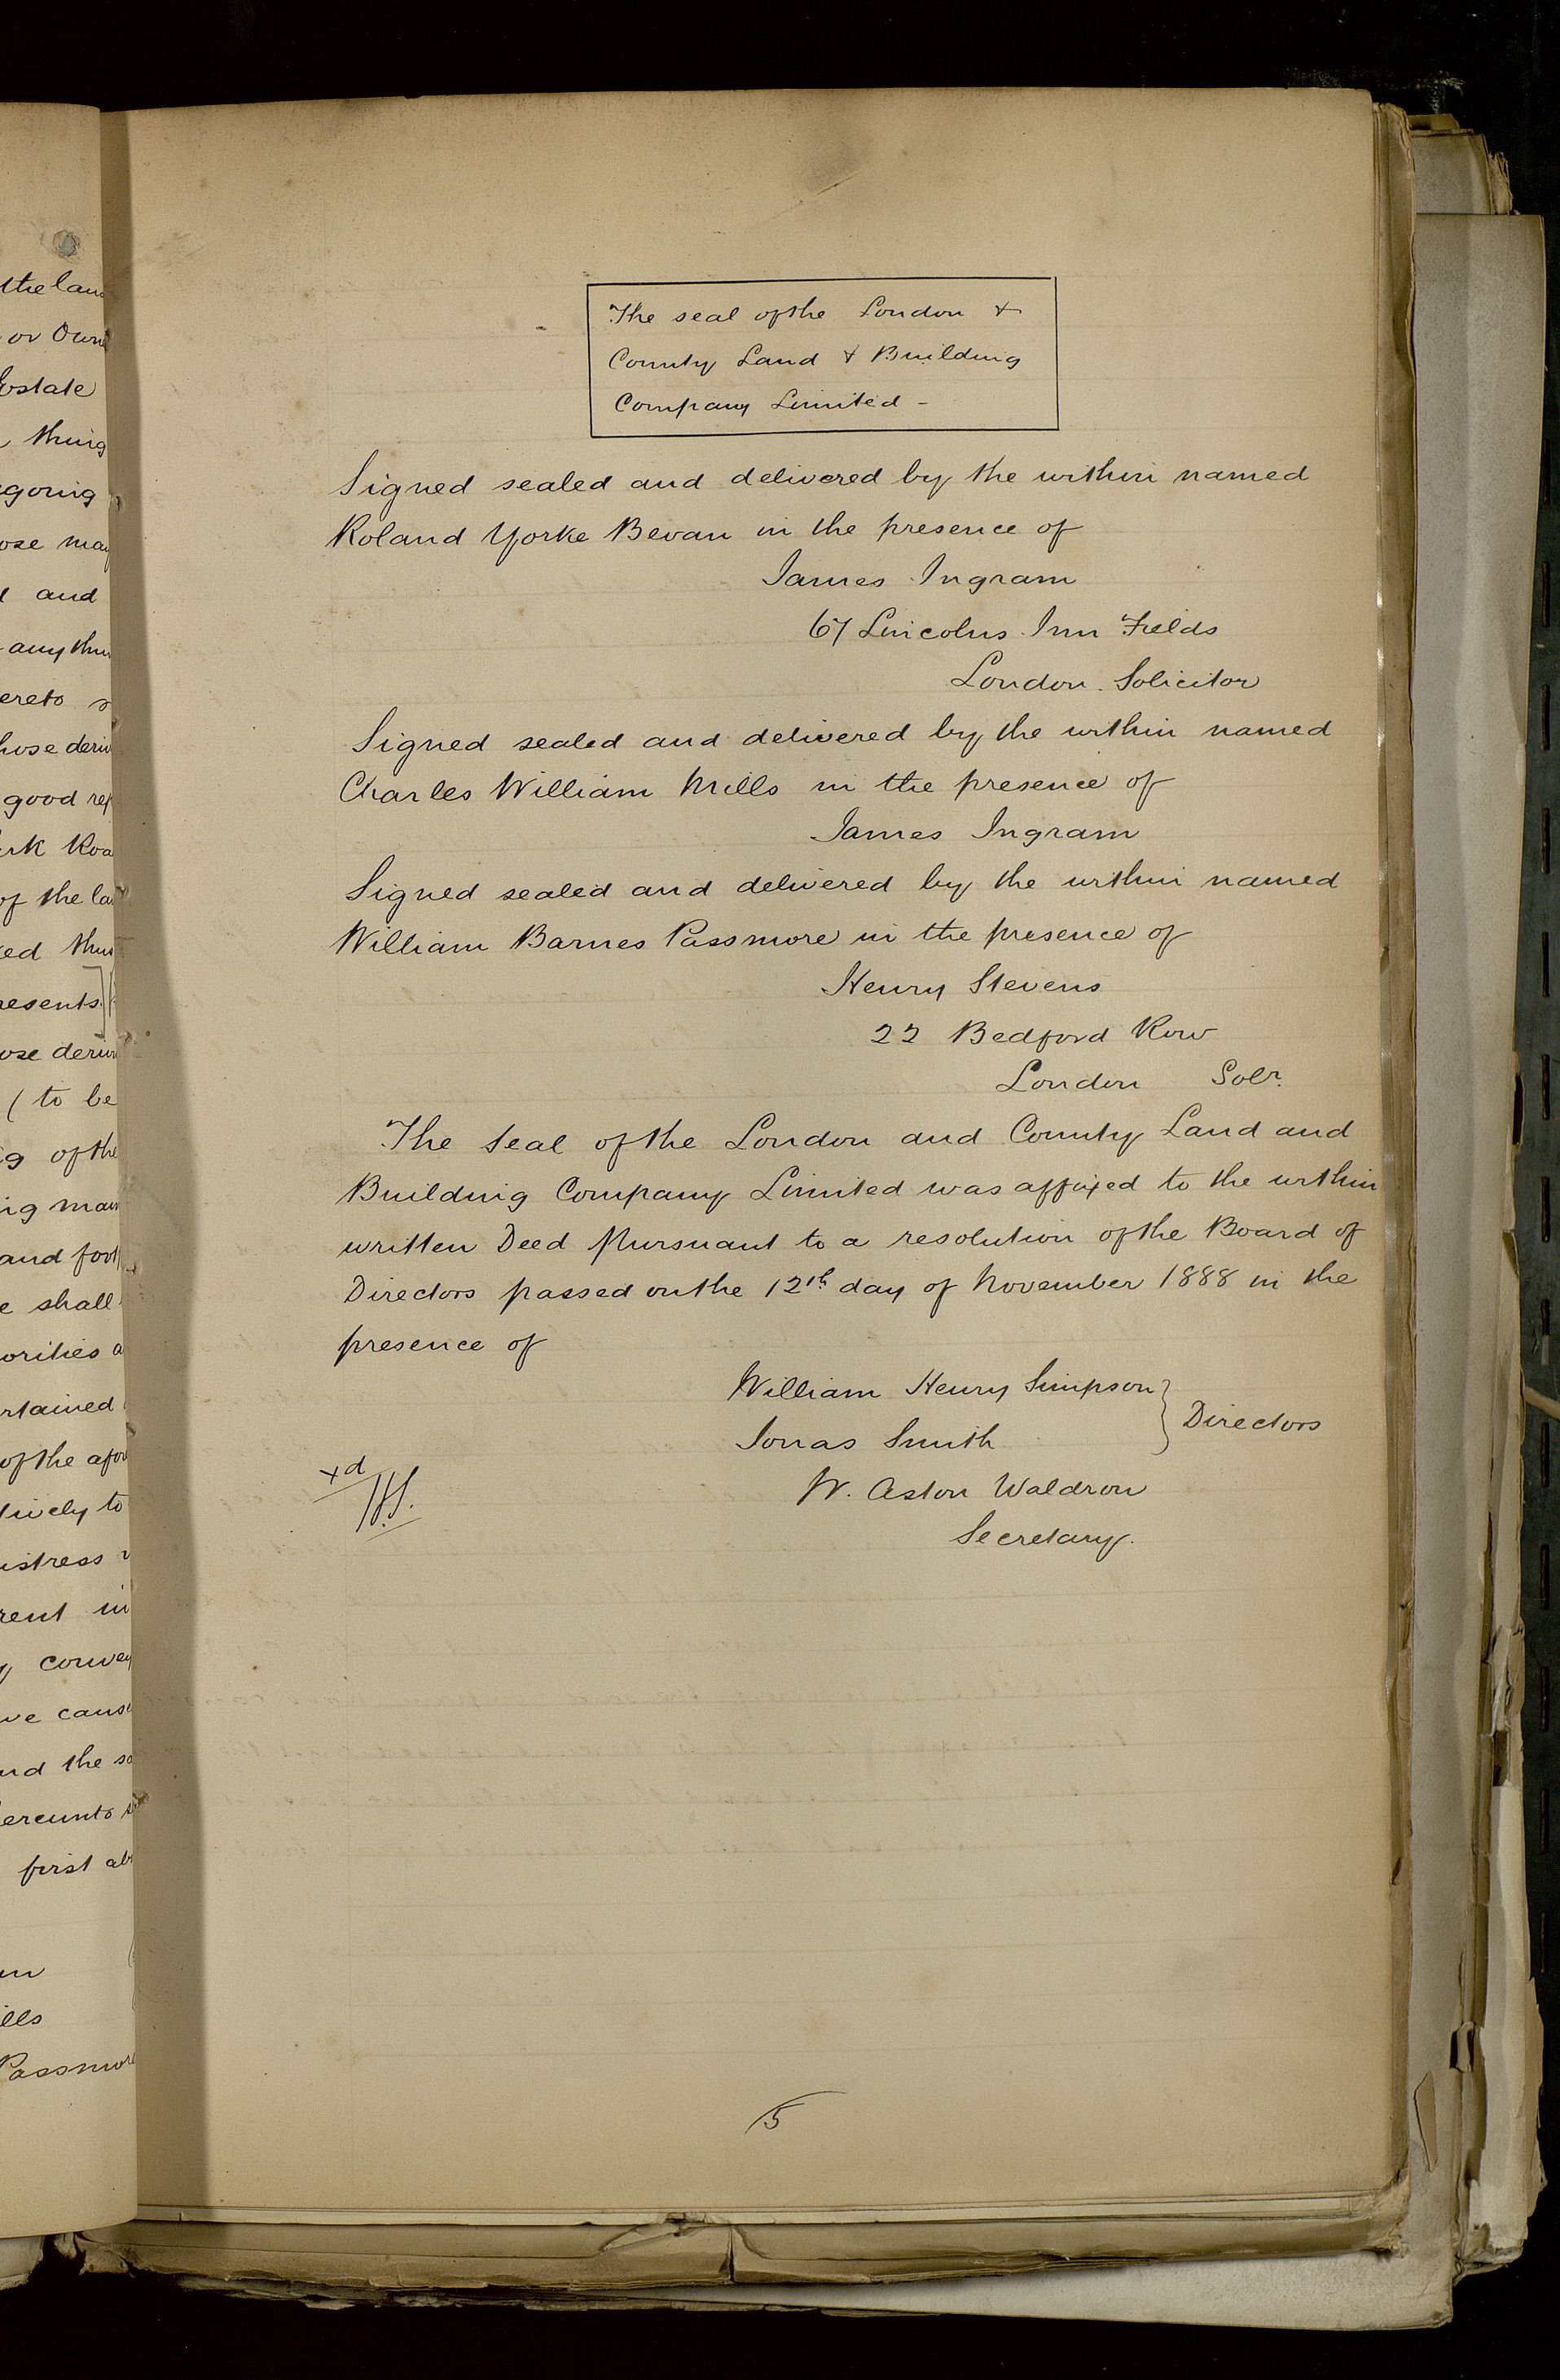 the lan
or Own
Estate
thing
going
ose may
and
any thin
ereto
hose deriv
good rep
ark Roa
of the la
ed thus
resents
ose deriv
( to be
of the
ig main
and foot
e shall
orities a
rtained
of the afor
tively to
istress
rent in
y convey
ve cause
nd the sa
ereunto
first ab
ills
Passmore
The seal of the London &
County Land & Building
Company Limited -
Signed sealed and delivered by the within named
Roland Yorke Bevan in the presence of
James Ingram
67 Lincolns Inn Fields
London. Solicitor
Signed sealed and delivered by the within named
Charles William Mills in the presence of
James Ingram
Signed sealed and delivered by the within named
William Barnes Passmore in the presence of
Henry Stevens
22 Bedford Row
London Solr.
The Seal of the London and County Land and
Building Company Limited was affixed to the within
written Deed Pursuant to a resolution of the Board of
Directors passed on the 12th day of November 1888 in the
presence of
William Henry Simpson } Directors
Jonas Smith
xd
W. Aston Waldron
Secretary.
5